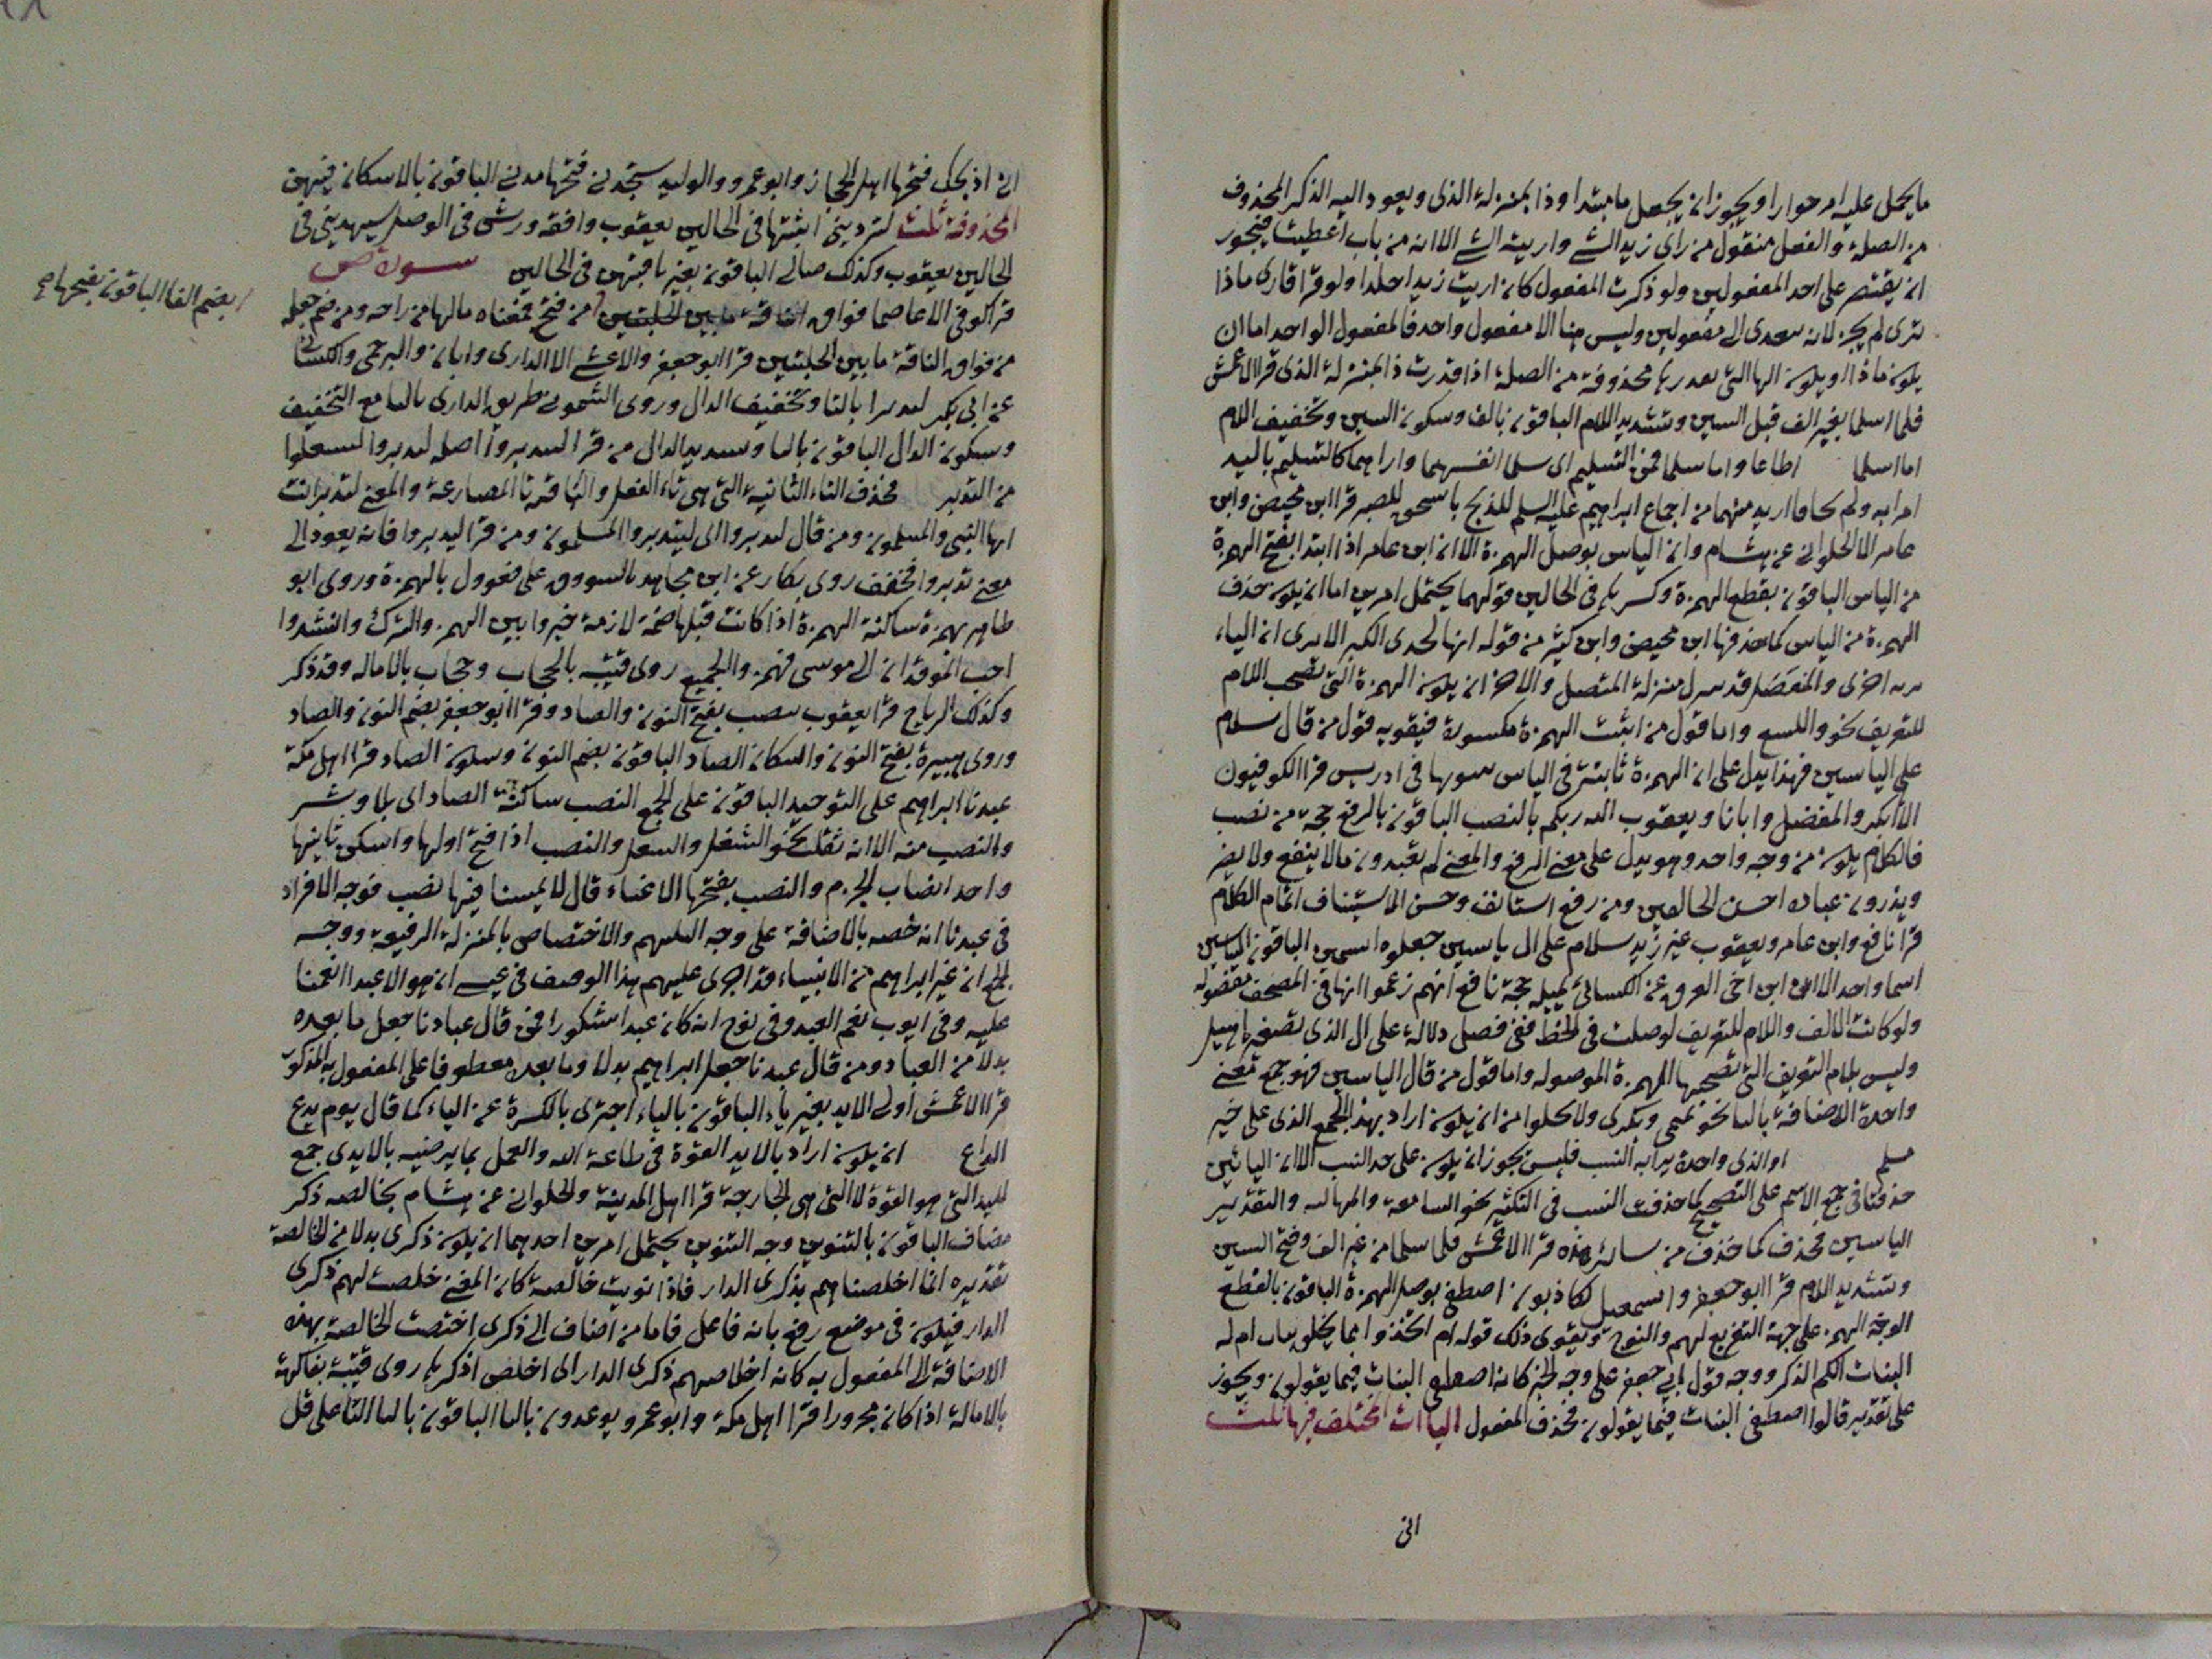 ما يحمل عليه امر حوارا ويجوز ان يجعل ما مبتدا وذا بمنزلة الذى ويعود اليه الذكر المحذوف
من الصلة والفعل منقول من راى زيد الشئ واريته الشئ الا انه من باب اعطيت فيجوز
ان يقتصر على احد المفعولين ولو ذكرت المفعول كان اريت زيدا خلدا ولو قرا قارى ماذا
ترى لم يجز لانه يتعدى الى مفعولين وليس هنا الا مفعول واحد فالمفعول الواحد اما ان
يكون ماذا او يكون الها التى محذوفة من الصلة اذا قدرت ذا بمنزلة الذى قرا الاعمش
فلما اسلما بغير الف قبل السين وتشديد اللام الباقون بالف وسكون السين وتخفيف اللام
اما اسلما اطاعا واما سلما فمن التسليم اى سلما انفسهما واراهما كالتسليم باليد
امرا به ولم يخالفا اريد منهما من اجماع ابراهيم عليه السلم للذبح باسحق للصبر قرا ابن محيصن وابن
عامر الا الحلوانى عن هشام وان الياس بوصل الهمزة الا ان ابن عامر اذا ابتدا بفتح الهمزة
من الياس الباقون بقطع الهمزة وكسرها فى الحالين قولهما يحتمل امرين اما ان يكون حذف
الهمزة من الياس كما حذفها ابن محيصن وابن كثير من قوله انها لحدى الكبر الا ترى ان الياء
اخرى والمنفصل قد ينزل منزلة المتصل والاخر ان يكون الهمزة التى تصحب اللام
للتعريف نحو واليسع واما قول من اثبت الهمزة مكسورة فيقويه قول من قال سلام
على الياسين فهذا يدل على ان الهمزة ثابتة فى الياس ثبوتها فى ادريس قرا الكوفيون
الا ابا بكر والمفضل وابانا ويعقوب الله ربكم بالنصب الباقون بالرفع حجة من نصب
فالكلام يكون من وجه واحد وهو يدل على معنى الرفع والمعنى لم تعبدون ما لا ينفع ولا يضر
ويذرون عبادة احسن الخالقين ومن رفع استانف وحسن الاستيناف اتمام الكلام
قرا نافع وابن عامر ويعقوب غير زيد سلام على ال ياسين جعلوه اسمين الباقون الياسين
اسما واحدا الا ان ابن اخى العرق عن الكسائى يميله حجة نافع انهم زعموا انها فى المصحف مفصولة
ولو كانت الالف واللام للتعريف لوصلت فى الخط ففى فصل دلالة على ال الذى تصغيره اهيل
وليس بلام التعريف التى تصحبها الهمزة الموصولة واما قول من قال الياسين فهو جمع معنى
واحدة الاضافة بالياء نحو تميمى وبكرى ولا يخلوا من ان يكون اراد بهذا الجمع الذى على خير
مسلم او الذى واحدة يراد به النسب فليس يجوز ان يكون على حد النسب الا ان اليائين
حذفتا فى جمع الاسم على التصحيح كما حذفت النسب فى التكثير نحو السامعة والمهالبة والتقدير
الياسين فحذف كما حذف من سائر هذه قرا الاعمش فلما سلما من غير الف وفتح السين
وتشديد اللام قرا ابو جعفر واسمعيل لكاذبون اصطفى بوصل الهمزة الباقون بالقطع
الوجه الهمز على جهة التقريع لهم والتوبيخ ويقوى ذلك قوله ام اتخذوا مما يخلق بنات ام له
البنات الكم الذكر ووجه قول ابى جعفر على وجه الخبر كانه اصطفى البنات فيما يقولون ويجوز
على تقدير قالوا اصطفى البنات فيما يقولون فحذف المفعول الياات المختلف فيها ثلث
انى
انى اذبحك فتحها اهل الحجاز وابو عمرو والوليد ستجدنى فتحها مدنى الباقون بالاسكان فيهن
المحذوفة ثلث لتردينى اثبتها فى الحالين يعقوب وافقه ورش فى الوصل سيهدينى فى
الحالين يعقوب وكذلك صالى الباقون بغير يا فيهن فى الحالين سورة ص
قرا كوفى الا عاصما فواق الناقة ما بين الحلبتين من فتح فمعناه مالها من راحة ومن ضم جعله
بضم الفا الباقون بفتحها صح
من فواق الناقة ما بين الحلبتين قرا ابو جعفر والاعشى الا الدارى وابان والبرجمى والكسائى
عن ابى بكر لتدبروا بالتا وتخفيف الدال وروى الشمونى طريق الدارى باليا مع التخفيف
وسكون الدال الباقون باليا وتشديد الدال من قرا لتدبروا اصله لتدبروا لتفعلوا
من التدبر فحذف التاء الثانية التى هى تاء الفعل والباقية تا المضارعة والمعنى لتدبر انت
ايها النبى والمسلمون ومن قال ليدبروا اى ليتدبروا المسلمون ومن قرا ليدبروا فانه يعود الى
معنى تدبروا فخفف روى بكار عن ابن مجاهد بالسووق على فعوول بالهمزة وروى ابو
طاهر بهمزة ساكنة الهمزة اذا كانت قبلها ضمة لازمة خيروا بين الهمز والترك وانشدوا
احب الموقدان الى موسى فهمز والجميع روى قتيبة بالحجاب وحجاب بالاماله وقد ذكر
وكذلك الرياح قرا يعقوب بنصب بفتح النون والصاد وقرا ابو جعفر بضم النون والصاد
وروى هبيرة بفتح النون واسكان الصاد الباقون بضم النون وسكون الصاد قرا اهل مكة
عبدنا ابراهيم على التوحيد الباقون على الجمع النصب ساكنة الصاد اى بلاء وشر
والنصب منه الا انه ثقل نحو الشغل والشغل والنصب اذا فتح اولها واسكن ثانيها
واحد انصاب الحرم والنصب بفتحها الاعياء قال لا يمسنا فيها نصب فوجه الافراد
فى عبدنا انه خصه بالاضافة على وجه التكريم والاختصاص بالمنزلة الرفيعة ووجه
الجمع ان غير ابراهيم من الانبياء قد اجرى عليهم هذا الوصف فى عيسى ان هو الا عبد انعمنا
عليه وفى ايوب نعم العبد وفى نوح انه كان عبدا شكورا فمن قال عبادنا جعل ما بعده
بدلا من العباد ومن قال عبدنا جعل ابراهيم بدلا وما بعده معطوفا على المفعول به المذكور
قرا الاعمش اولى الايد بغير ياء الباقون بالياء اجتزى بالكسرة عن الياء كما قال يوم يدع
الداع ان يكون اراد بالايد القوة فى طاعة الله والعمل بما يرضيه بالايدى جمع
لليد التى هو القوة لا التى هى الجارحة قرا اهل المدينة والحلوانى عن هشام بخالصه ذكر
مضاف الباقون بالتنوين وجه التنوين يحتمل امرين احدهما ان يكون ذكرى بدلا من الخالصة
تقديره انا اخلصناهم بذكرى الدار فاذا نويت خالصة كان المعنى خلصت لهم ذكرى
الدار فيكون فى موضع رفع بانه فاعل فاما من اضاف الى ذكرى اختصت الخالصة بهذه
الاضافة الى المفعول به كانه اخلاصهم ذكرى الدار اى اخلص اذكرها روى قتيبة بفاكهة
بالامالة اذا كان مجرورا قرا اهل مكة وابو عمرو يوعدون باليا الباقون بالتا على قل